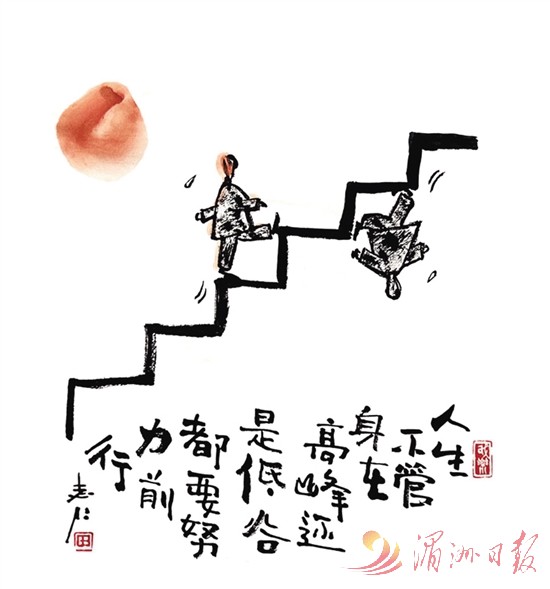 人生
不管
身在
高峰还
是低谷
都要努
力前
行
湄洲日报